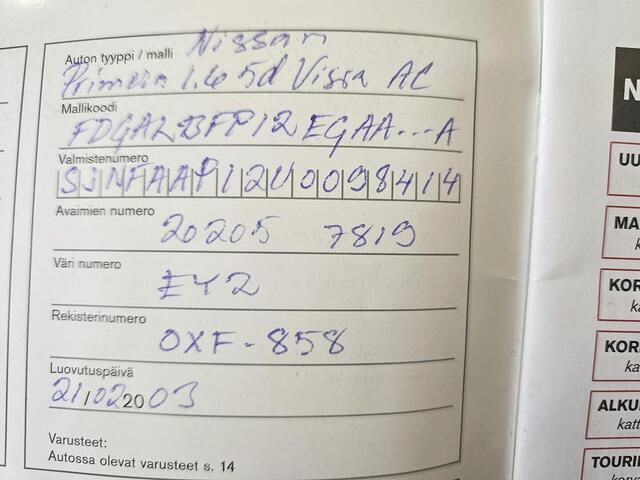 Auton tyyppi / malli Nissan
Primera 1.6 5d Visia AC
Mallikoodi
FDGALBFP12EGAA---A
Valmistenumero
SJNFAAP12U0098414
Avaimien numero
20205 7819
Väri numero
EY2
Rekisterinumero
OXF-858
Luovutuspäivä
21/02 2003
Varusteet:
Autossa olevat varusteet s. 14
N
UU
MA
k
KOR
ka
KOR
ka
ALKU
katt
TOURI